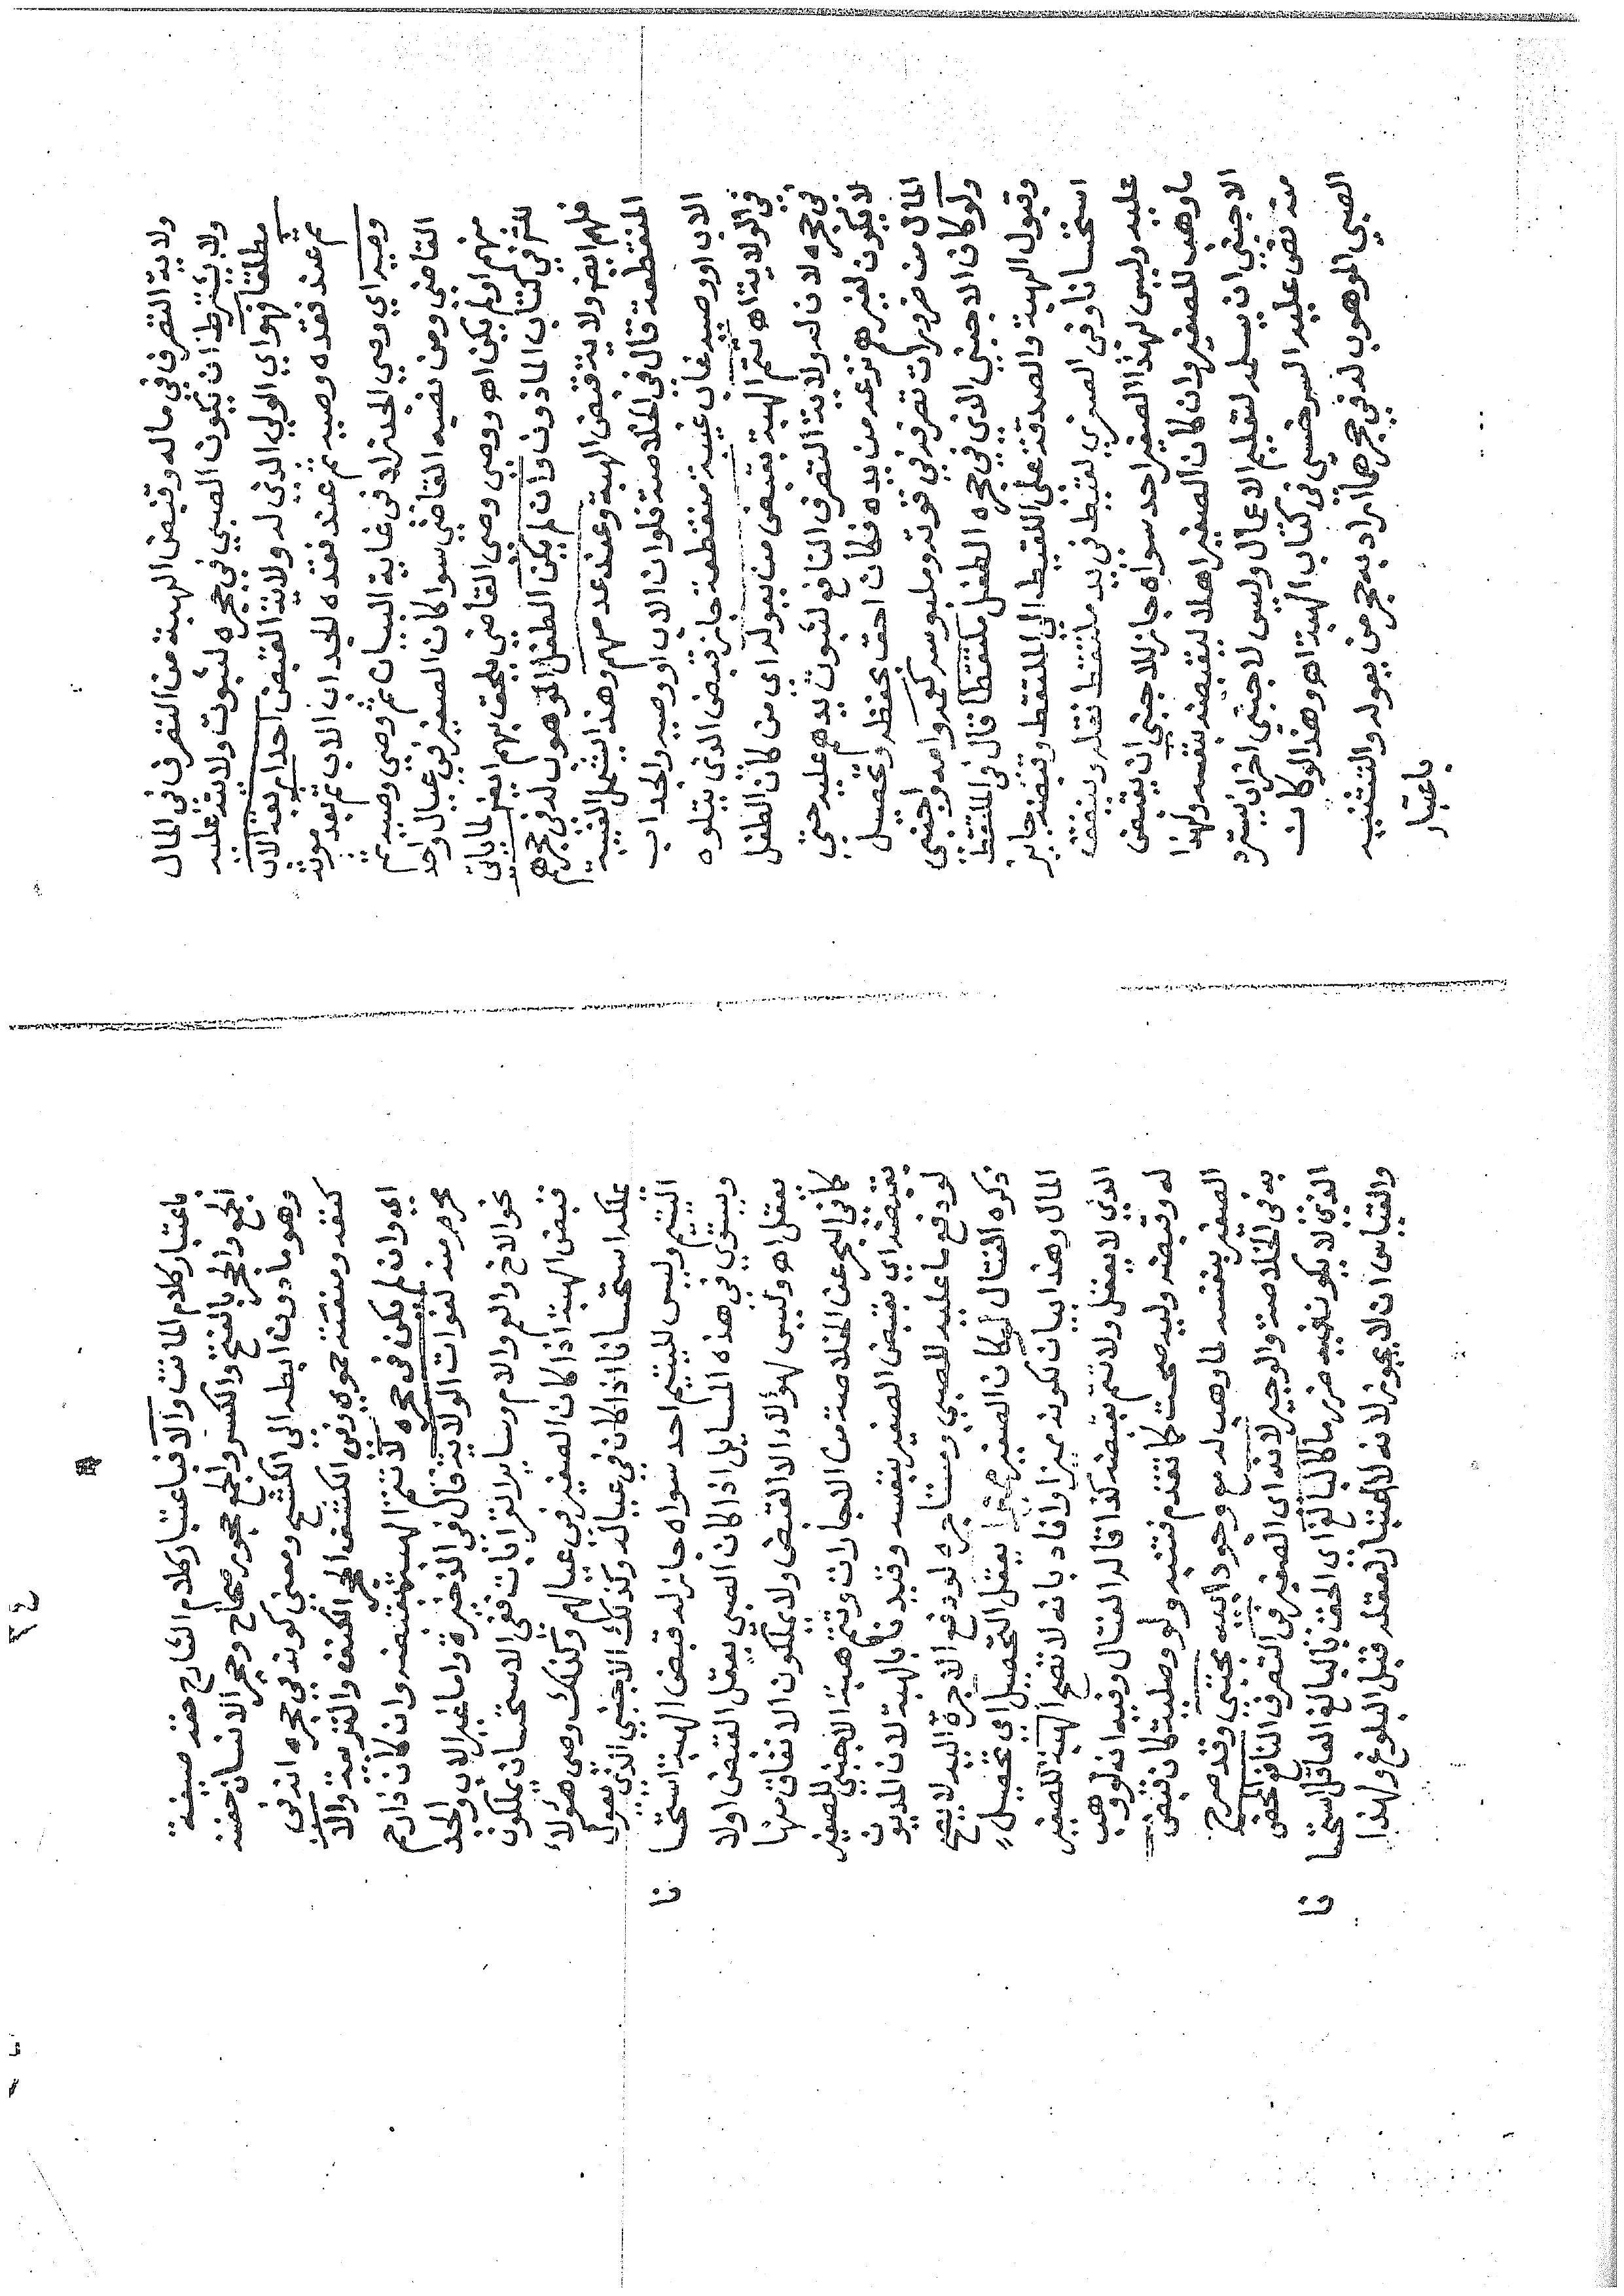 ولاية التصرف في ماله وقبض الهبة من التصرف في المال
ولا يشترط ان يكون الصبي في حجره لثبوت ولايته عليه
مطلقا فهو اي الولي الذي له ولاية القبض احد اربعة الاب
ثم عند فقده وصيه ثم عند فقده الجد اب الاب ثم بعد موته
وصيه اي وصي الجد زاد في غاية البيان ثم وصي وصيه ثم
القاضي ومن نصبه القاضي سوا كان الصغير في عيال واحد
منهم او لم يكن اه ووصي وصي القاضي يلحق بهم ايضا لما ياتي
للشرح في كتاب الماذون وان لم يكن الطفل الموهوب له في حجرهم
فلهم ايضا ولاية قبض الهبة وعند عدمهم وهذا يشمل الغيبة
المنقطعة قال في الخلاصة فلو ان الاب او وصيه والجد اب
الاب او وصيه غاب غيبة منقطعة جاز قبض الذي يتلوه
في الولاية اه تتم الهبة بقبض من يعوله اي من كان الطفل
في حجره لان له ولاية التصرف النافع لثبوت يدهم عليه حتى
لا يكون لغيرهم نزعه من يده فكان احق بحفظه وتحصيل
المال من ضرورات تصرفه في قوته وملبوسه كعمه وامه واجنبي
ولو كان الاجنبي الذي في حجره الطفل ملتقطا قال في الملتقط
وقبول الهبة والصدقة على اللقيط الى الملتقط وقبضه جايز
استحسانا وفي الصغرى لقيط في يد ملتقط نقله وينفق
عليه وليس لهذا الصغير احد سواه جاز للاجنبي ان يقبض
ما وهب للصغير وان كان الصغير اهلا ليقبضه بنفسه ولهذا
الاجنبي ان يسلمه لتعليم الاعمال وليس لاجنبي اخر ان يسترد
منه نص عليه السرخسي في كتاب الهبة اه وهذا لو كان
الصبي الموهوب له في حجرهما اراد به حجر من يعوله والتثنيه
باعتبار
باعتبار كلام الماتن والا فباعتبار كلام الشارح حقه صيغة
الجمع والحجر بالفتح والكسر والجمع حجور صحاح وحجر الانسان حضنه
وهو ما دون ابطه الى الكشح ومعنى كونه في حجره انه في
كنفه ومنعته حموي وفي الكشف الحجر الكنف والتربية والا
اي وان لم يكن في حجره لا تتم الهبة بقبضه وان كان ذا رحم
محرم منه لفوات الولاية قال في الذخيرة واما غير الاب والجد
نحو الاخ والعم والام وساير القرابات ففي الاستحسان يملكون
قبض الهبة اذا كان الصغير في عيالهم وكذلك وصي هؤلاء
يملكه استحسانا اذا كان في عياله وكذلك الاجنبي الذي يعول
اليتيم وليس لليتيم احد سواه جاز له قبض الهبة استحسا
نا
ويستوي في هذه المسايل اذا كان الصبي يعقل القبض اولا
يعقل اه وليس لهؤلاء الا القبض ولا يملكون الانفاق منها
كما في البحر عن الخلاصة من الاجارات وتتم هبة الاجنبي للصغير
بقبضه اي بقبض الصغير بنفسه وقيدنا بالهبة لان المديون
لو دفع ما عليه للصبي ومستاجره لو دفع الاجرة اليه لا يصح
ذكره القتال لو كان الصغير مميزا يعقل التحصيل اي تحصيل
المال وهذا بيان لكونه مميزا وافاد بانه لا تصح الهبة للصغير
الذي لا يعقل ولا تتم بقبضه كذا قاله القتال وفيه انه لو وهب
له وقبضه وليه صحت كما تقدم فتنبه ولو وصلية كان قبض
الصغير بنفسه لما وهب له مع وجود ابيه مجتبي وقد صرح
به في الخلاصة والوجيز لانه اي الصغير في التصرف النافع المحض
الذي لا يكون فيه ضرر ما كالبالغ اي الحق بالبالغ العاقل استحسا
نا
والقياس ان لا يجوز لانه لا اعتبار لعقله قبل البلوغ ولهذا